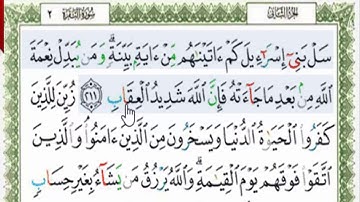 الجزء الثاني ٢ سورة البقرة
سَلْ بَنِىٓ إِسْرَٰٓءِيلَ كَمْ ءَاتَيْنَٰهُم مِّنْ ءَايَةٍۭ بَيِّنَةٍۗ وَمَن يُبَدِّلْ نِعْمَةَ
ٱللَّهِ مِنۢ بَعْدِ مَا جَآءَتْهُ فَإِنَّ ٱللَّهَ شَدِيدُ ٱلْعِقَابِ ٢١١ زُيِّنَ لِلَّذِينَ
كَفَرُوا۟ ٱلْحَيَوٰةُ ٱلدُّنْيَا وَيَسْخَرُونَ مِنَ ٱلَّذِينَ ءَامَنُوا۟ۘ وَٱلَّذِينَ
ٱتَّقَوْا۟ فَوْقَهُمْ يَوْمَ ٱلْقِيَٰمَةِۗ وَٱللَّهُ يَرْزُقُ مَن يَشَآءُ بِغَيْرِ حِسَابٍ